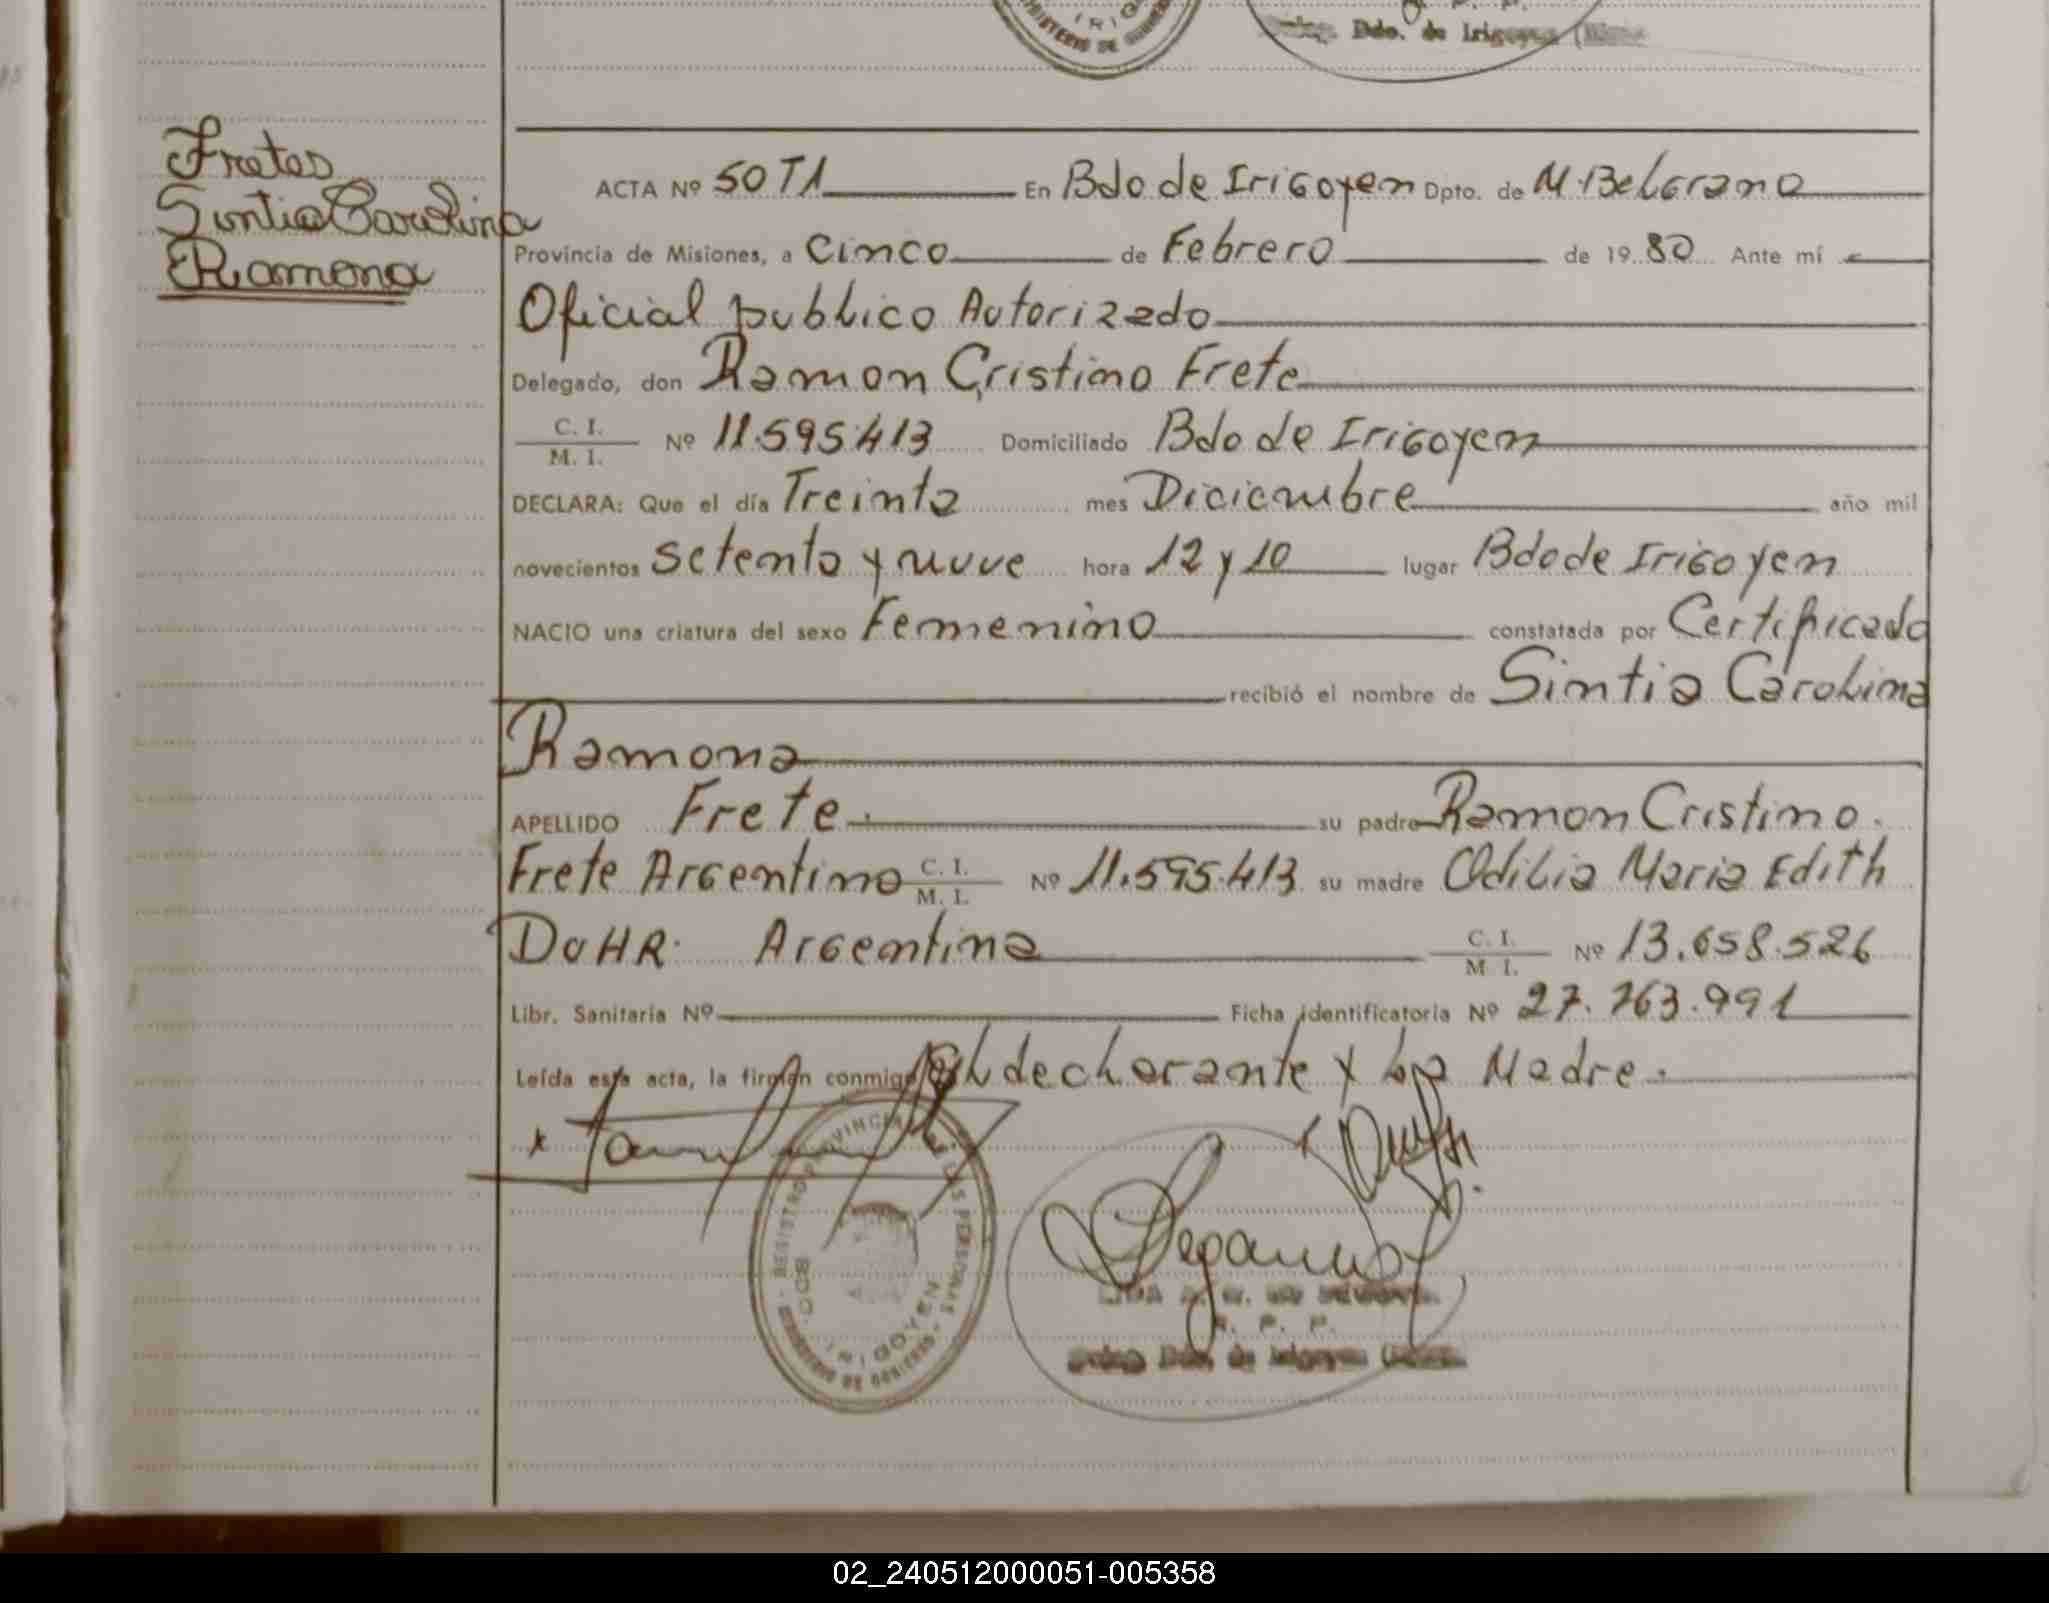 IRIGO
MINISTERIO DE GOBIERNO
Bdo. de Irigoyen
Fretes
Sintia Carolina
Ramona
ACTA Nº 50 T1 En Bdo de Irigoyen Dpto. de M. Belgrano
Provincia de Misiones, a Cinco de Febrero de 19 80 Ante mí
Oficial publico Autorizado
Delegado, don Ramon Cristino Frete
C. I.
M. I. Nº 11.595.413 Domiciliado Bdo de Irigoyen
DECLARA: Que el día Treinta mes Diciembre año mil
novecientos setenta y nueve hora 12 y 10 lugar Bdo de Irigoyen
NACIO una criatura del sexo Femenino constatada por Certificado
recibió el nombre de Sintia Carolina
Ramona
APELLIDO Frete. su padre Ramon Cristino.
Frete Argentino C. I. M. I. Nº 11.595.413 su madre Odilia Maria Edith
DUHR. Argentina C. I. M. I. Nº 13.658.526
Libr. Sanitaria Nº Ficha identificatoria Nº 27.763.991
Leída esta acta, la firman conmigo el declarante y la Madre.
x
REGISTRO PROVINCIAL DE LAS PERSONAS
MINISTERIO DE GOBIERNO
BDO. IRIGOYEN
R. P. P.
Bdo. de Irigoyen
02_240512000051-005358